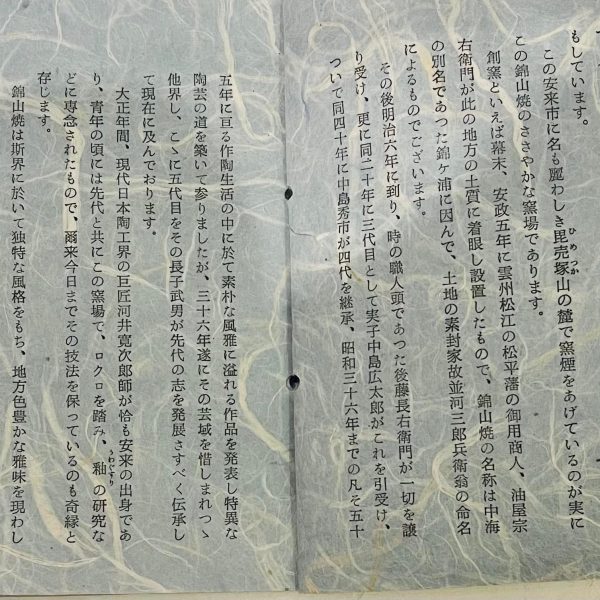 もしています。
この安来市に名も麗わしき毘売塚山の麓で窯煙をあげているのが実に
ひめつか
この錦山焼のささやかな窯場であります。
創窯といえば幕末、安政五年に雲州松江の松平藩の御用商人、油屋宗
右衛門が此の地方の土質に着眼し設置したもので、錦山焼の名称は中海
の別名であつた錦ヶ浦に因んで、土地の素封家故並河三郎兵衛翁の命名
によるものでございます。
その後明治六年に到り、時の職人頭であつた後藤長右衛門が一切を譲
り受け、更に同二十年に三代目として実子中島広太郎がこれを引受け、
ついで同四十年に中島秀市が四代を継承、昭和三十六年までの凡そ五十
五年に亘る作陶生活の中に於て素朴な風雅に溢れる作品を発表し特異な
陶芸の道を築いて参りましたが、三十六年遂にその芸域を惜しまれつゝ
他界し、こゝに五代目をその長子武男が先代の志を発展さすべく伝承し
て現在に及んでおります。
大正年間、現代日本陶工界の巨匠河井寛次郎師が恰も安来の出身であ
り、青年の頃には先代と共にこの窯場で、ロクロを踏み、釉の研究な
うわぐすり
どに専念されたもので、爾来今日までその技法を保っているのも奇縁と
存じます。
錦山焼は斯界に於いて独特な風格をもち、地方色豊かな雅味を現わし